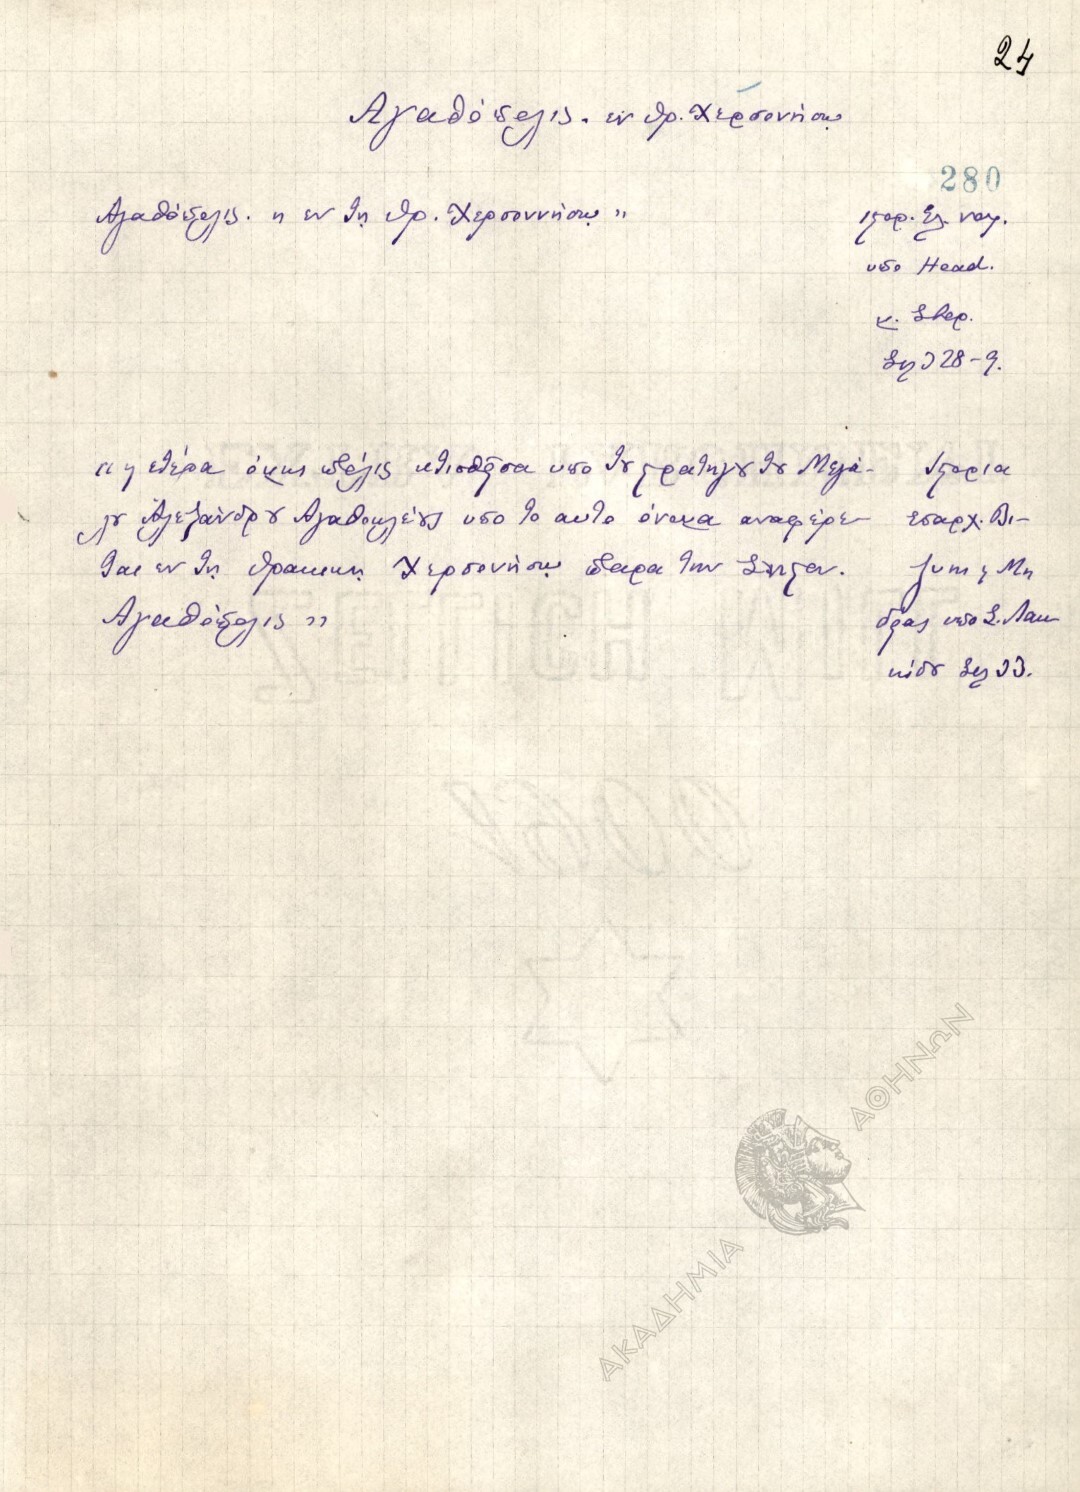 24
Αγαθόπολις. εν Θρ. Χερσονήσῳ
280
Αγαθόπολις. η εν τῃ Θρ. Χερσοννήσῳ "
Ιστορ. Ελ. νομ.
υπο Head.
κ. Σβορ.
Σελ 328-9.
"η ετέρα όμως πόλις κτισθείσα υπο του στρατηγού του Μεγά-
λου Αλεξάνδρου Αγαθοκλέους υπο το αυτο όνομα αναφέρε-
ται εν τῃ Θρακικῃ Χερσονήσῳ παρα την Σηστον.
Αγαθόπολις"
Ιστορια
επαρχ. Βι-
ζύης κ Μη
δείας υπο Σ. Λακ
κίδου Σελ 33.
ΑΚΑΔΗΜΙΑ ΑΘΗΝΩΝ